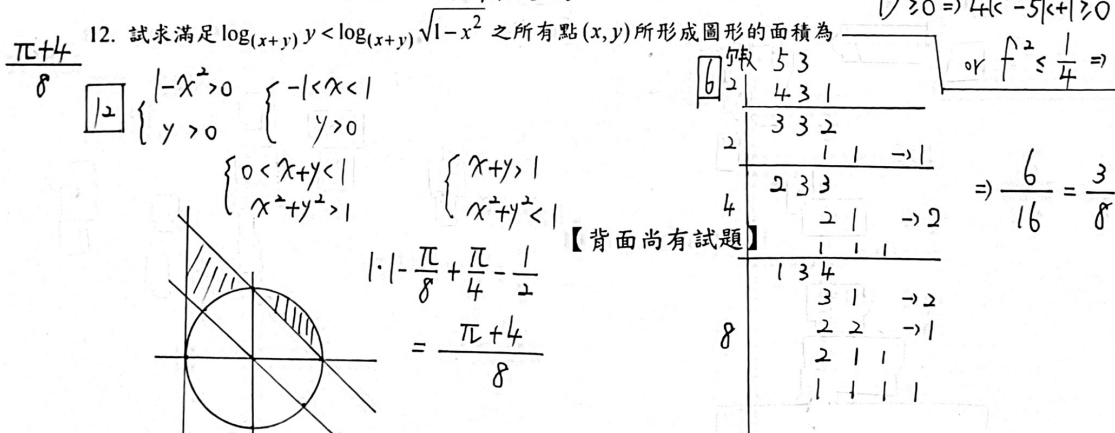 1) ≥ 0 ⇒ 4k² - 5k + 1 ≥ 0
12. 試求滿足 log_(x+y) y < log_(x+y) √(1-x²) 之所有點(x,y)所形成圖形的面積為
(π+4)/8
or f² ≤ 1/4 ⇒
12
{ 1-x²>0
{ y>0
{ -1<x<1
{ y>0
{ 0<x+y<1
{ x²+y²>1
{ x+y>1
{ x²+y²<1
1·1 - π/8 + π/4 - 1/2
= (π+4)/8
【背面尚有試題】
6
5 3
2 4 3 1
3 3 2
2 1 1 →1
2 3 3
4 2 1 →2
1 1 1
1 3 4
3 1 →2
8 2 2 →1
2 1 1
1 1 1 1
⇒ 6/16 = 3/8